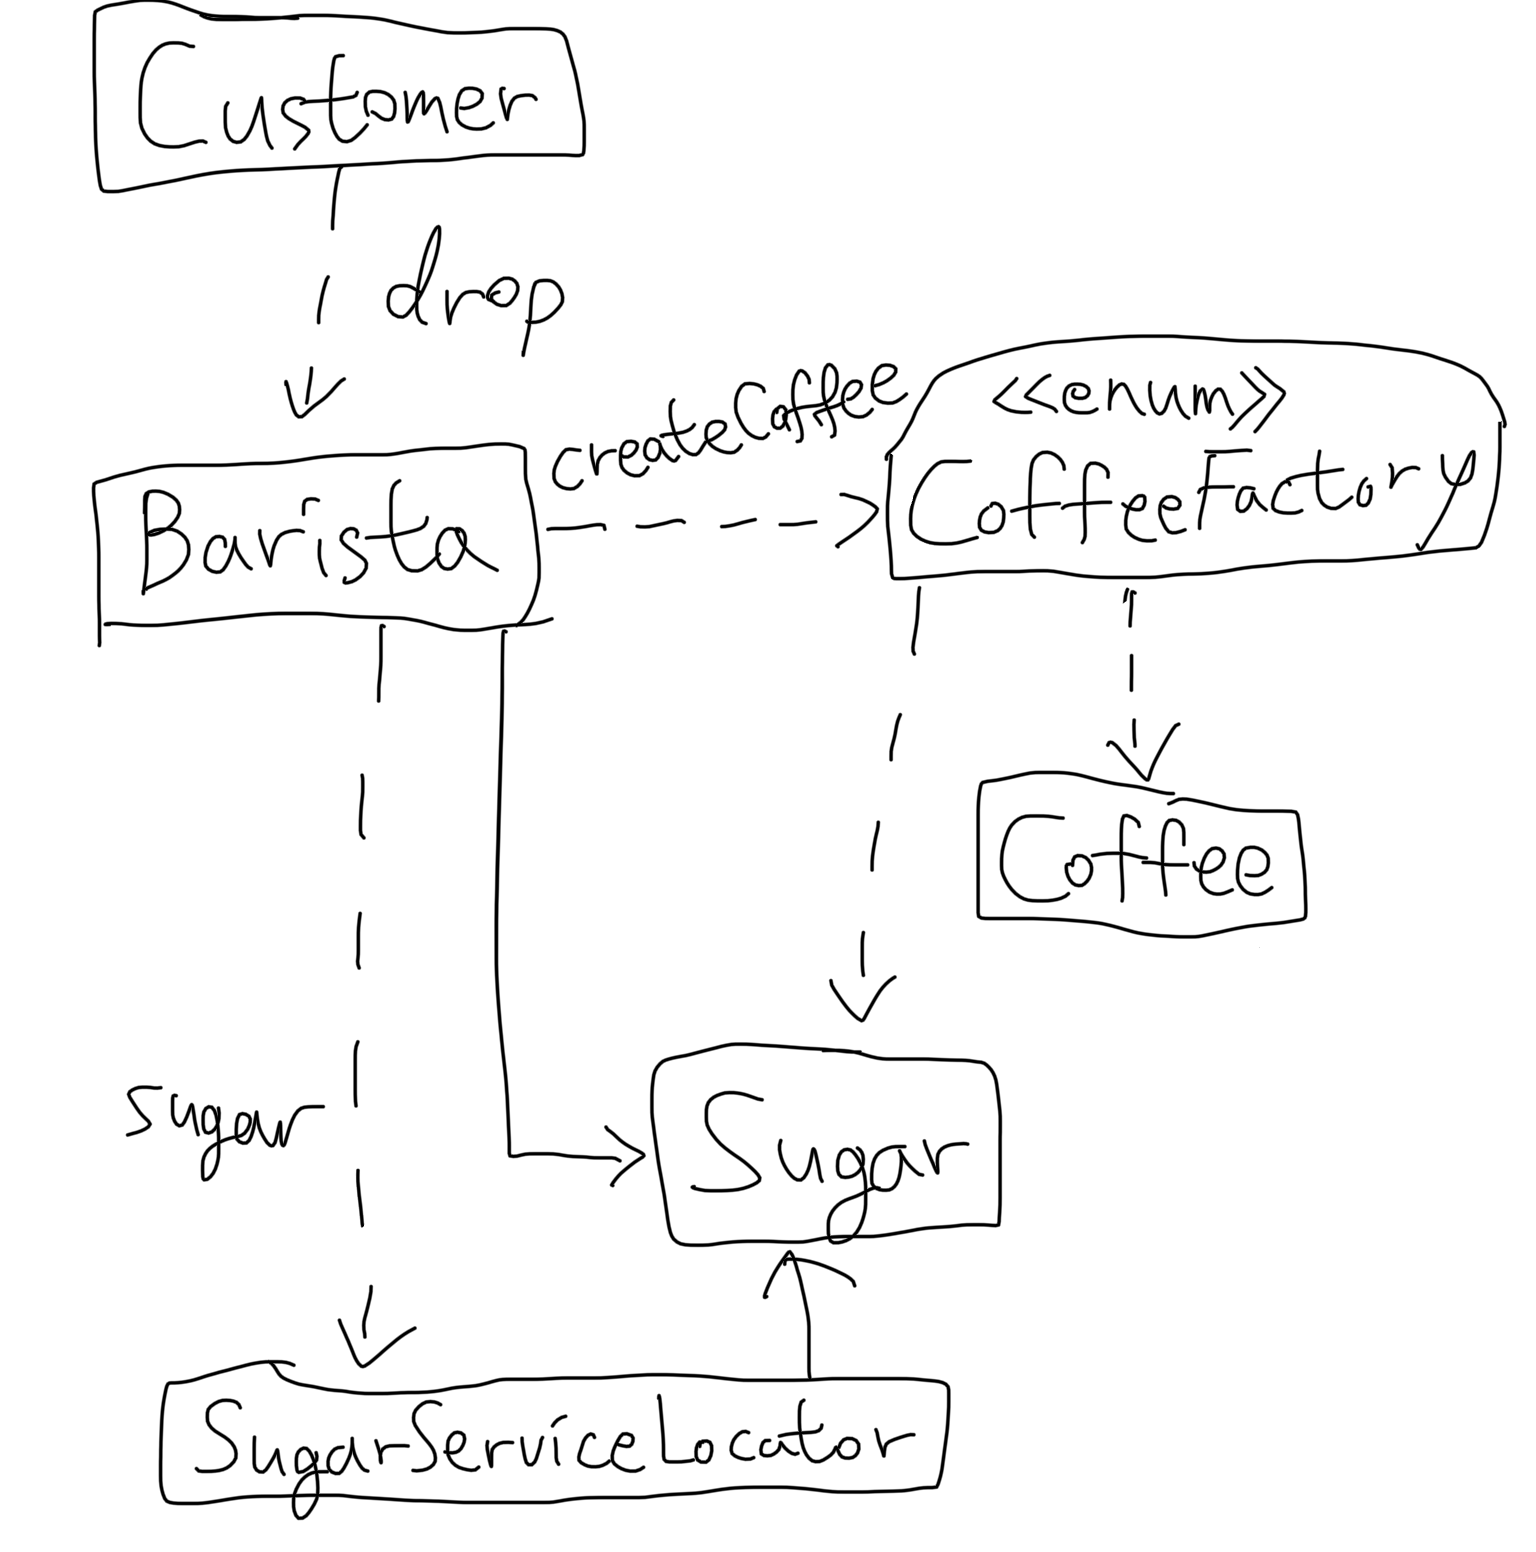 Customer
drop
createCoffee
<<enum>>
CoffeeFactory
Barista
Coffee
sugar
Sugar
SugarServiceLocator